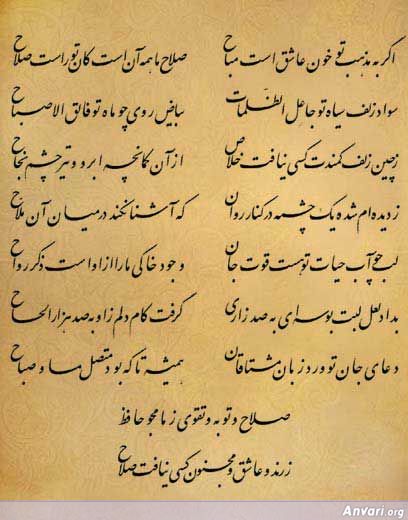 اگر به مذهب تو خون عاشق است مباح صلاح ما همه آن است کان تو راست صلاح
سواد زلف سیاه تو جاعل الظلمات بیاض روی چو ماه تو فالق الاصباح
ز چین زلف کمندت کسی نیافت خلاص از آن کمانچه ابرو و تیر چشم نجاح
ز دیده‌ام شده یک چشمه در کنار روان که آشنا نکند در میان آن ملاح
لب چو آب حیات تو هست قوت جان وجود خاکی ما را از او است ذکر رواح
بداد لعل لبت بوسه‌ای به صد زاری گرفت کام دلم ز او به صد هزار الحاح
دعای جان تو ورد زبان مشتاقان همیشه تا که بود متصل مسا و صباح
صلاح و توبه و تقوی ز ما مجو حافظ
ز رند و عاشق و مجنون کسی نیافت صلاح
Anvari.org